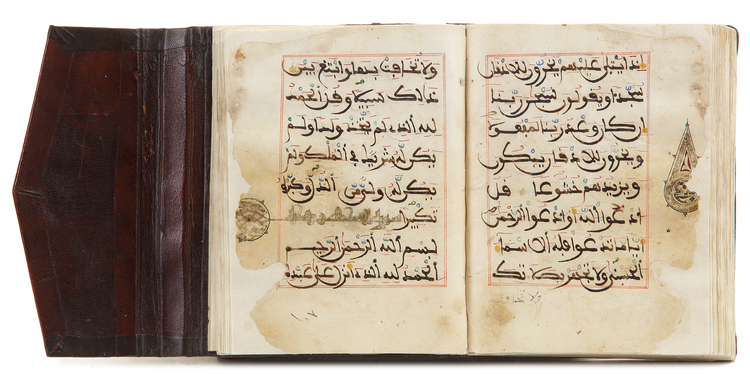 اذا يتلى عليهم يخرون للاذقان
سجدا ويقولون سبحن ربنا
ان كان وعد ربنا لمفعولا
ويخرون للاذقان يبكون
ويزيدهم خشوعا قل
ادعوا الله او ادعوا الرحمن
ايا ما تدعوا فله الاسما
الحسنى ولا تجهر بصلاتك
ولا تخا
ولا تخافت بها وابتغ بين
ذلك سبيلا وقل الحمد
لله الذي لم يتخذ ولدا ولم
يكن له شريك في الملك ولم
يكن له ولي من الذل وكبره
تكبيرا سورة الكهف
بسم الله الرحمن الرحيم
الحمد لله الذي انزل على عبده
١٠٧